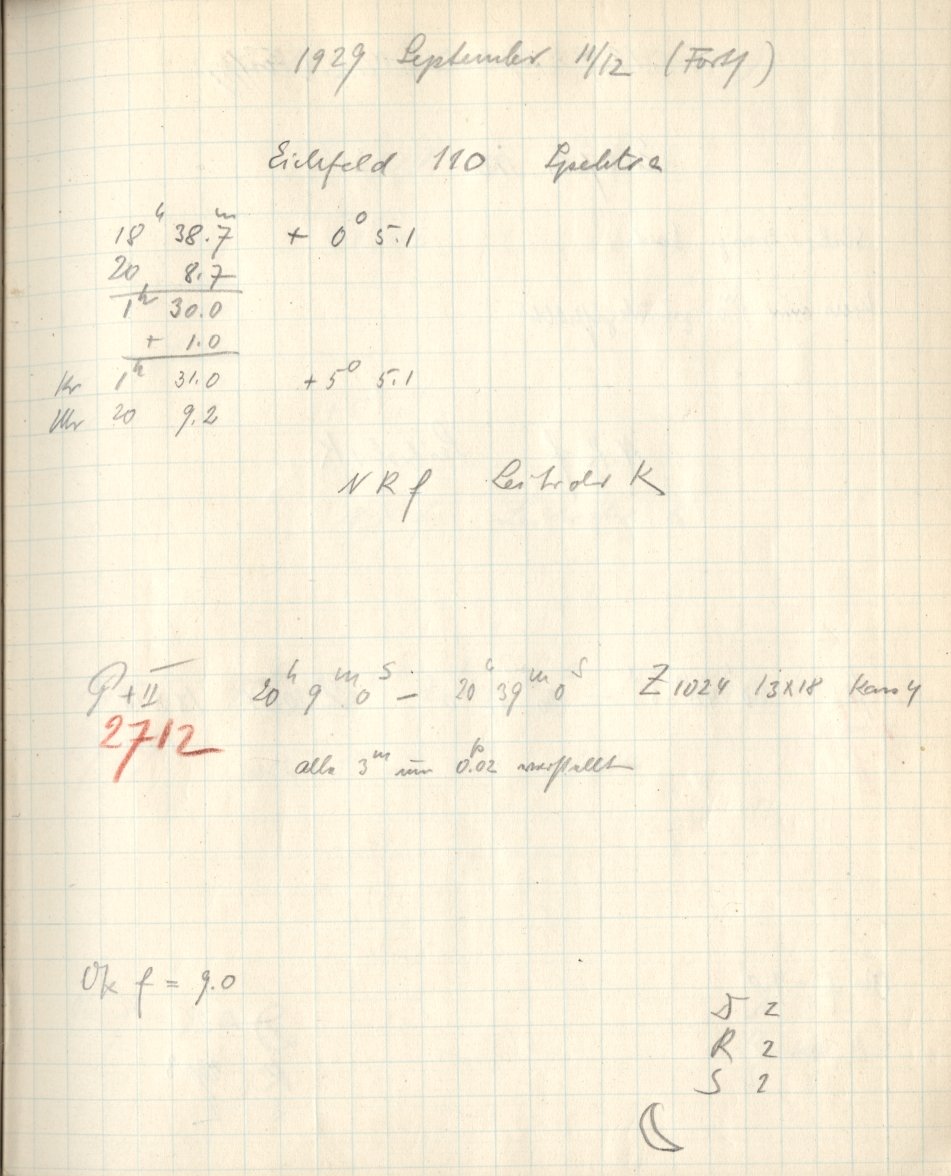 1929 September 11/12 (Forts)
Eichfeld 110 Spektra
18h 38.7m + 0° 5.1
20 8.7
1h 30.0
+ 1.0
Kr 1h 31.0 + 5° 5.1
Uhr 20 9.2
NRf Leitrohr K
P + II 20h 9m 0s – 20h 39m 0s Z 1024 13x18 Kass 4
2712
alle 3m um 0.02 verstellt
Ok f = 9.0
D 2
R 2
S 2